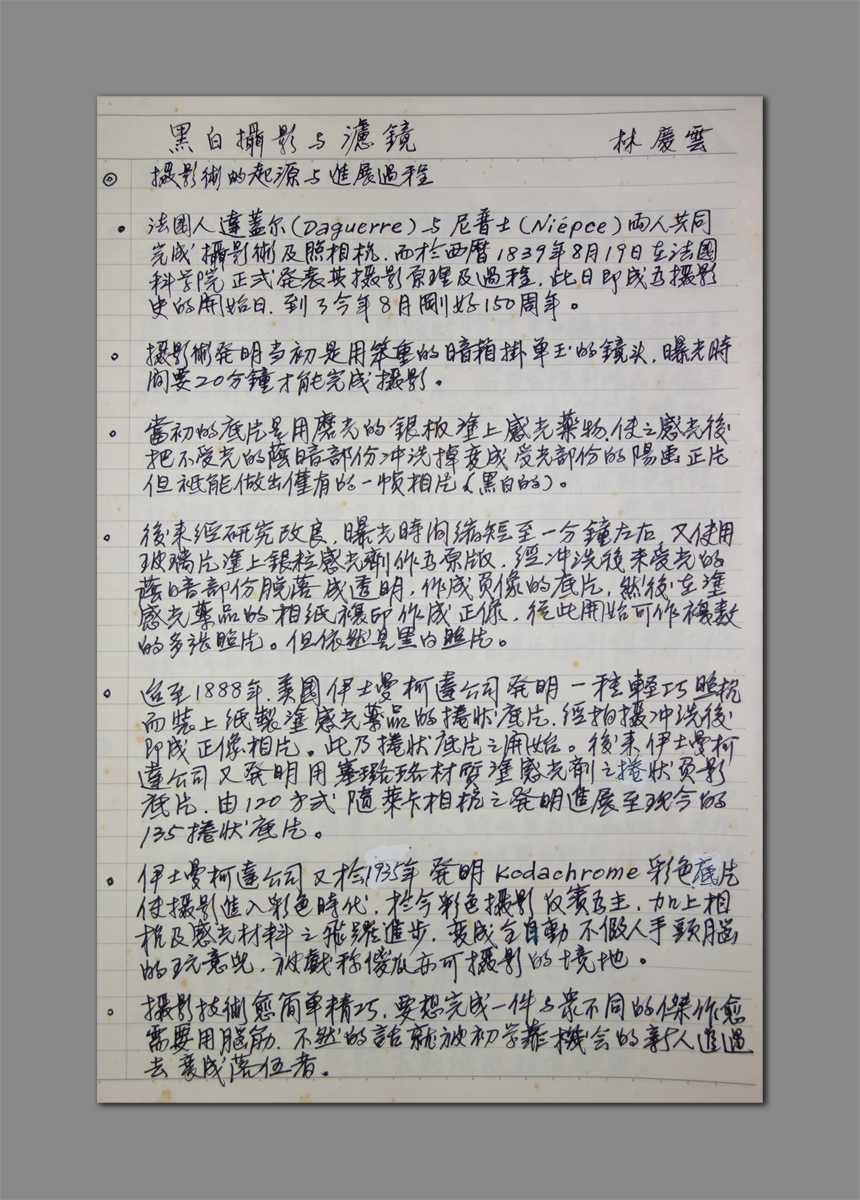 黒白攝影与濾鏡 林慶雲
◎ 摄影術的起源与進展過程
• 法国人達盖尔(Daguerre)与尼普士(Niépce)両人共同
完成攝影術及照相机,而於西曆1839年8月19日在法國
科学院正式発表其摄影原理及過程,此日即成为摄影
史的開始日,到了今年8月剛好150周年。
• 摄影術発明当初是用笨重的暗箱掛单玉的鏡头,曝光時
间要20分鐘才能完成摄影。
• 當初的底片是用磨光的銀板塗上感光薬物,使之感光後
把不受光的蔭暗部份冲洗掉变成受光部份的陽画正片
但祗能做出僅有的一帧相片(黒白的)。
• 後来経研究改良,曝光時间縮短至一分鐘左右,又使用
玻璃片塗上銀粒感光劑作为原版,経冲洗後未受光的
蔭暗部份脱落成透明,作成负像的底片,然後在塗
感光薬品的相紙複印作成正像,從此開始可作複数
的多張照片。但依然是黒白照片。
• 迨至1888年,美國伊士曼柯達公司発明一種輕巧照机
而装上纸製塗感光薬品的捲状底片,経拍摄冲洗後
即成正像相片。此乃捲状底片之開始。後来伊士曼柯
達公司又発明用塞璐珞材質塗感光劑之捲状负影
底片,由120方式随莱卡相机之発明進展至现今的
135捲状底片。
• 伊士曼柯達公司又於1935年発明Kodachrome彩色底片
使摄影進入彩色時代,於今彩色摄影反賓为主,加上相
机及感光材料之飛躍進步,变成全自動不假人手頭脳
的玩意児,被戲称傻瓜亦可摄影的境地。
• 摄影技術愈简单精巧,要想完成一件与衆不同的傑作愈
需要用脳筋,不然的話就被初学靠機会的新人追過
去变成落伍者。